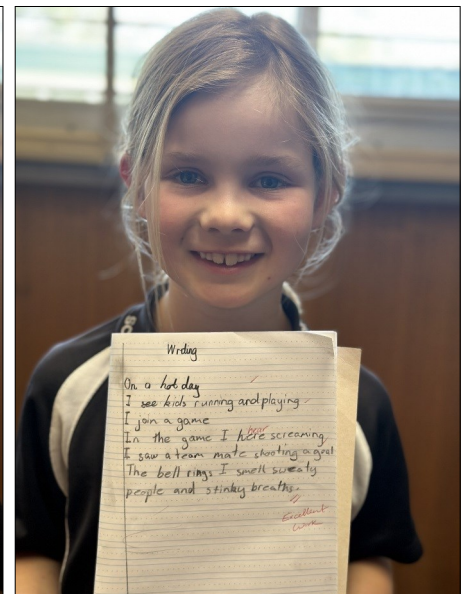 Writing
On a hot day
I see kids running and playing
I join a game
hear
In the game I here screaming
I saw a team mate shooting a goal
The bell rings I smell sweaty
people and stinky breaths.
Excellent
work